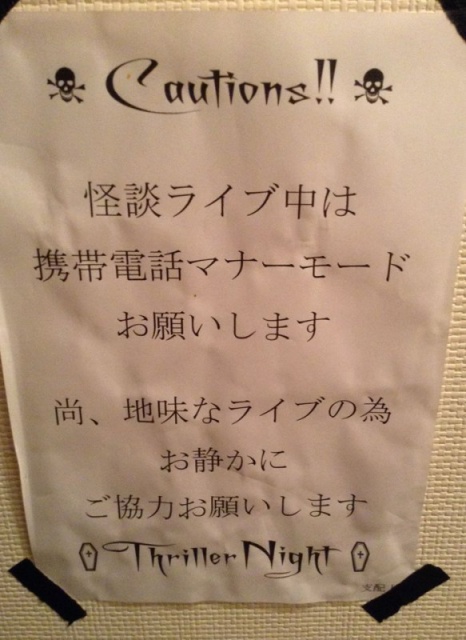 Cautions!!
怪談ライブ中は
携帯電話マナーモード
お願いします
尚、地味なライブの為
お静かに
ご協力お願いします
Thriller Night
支配